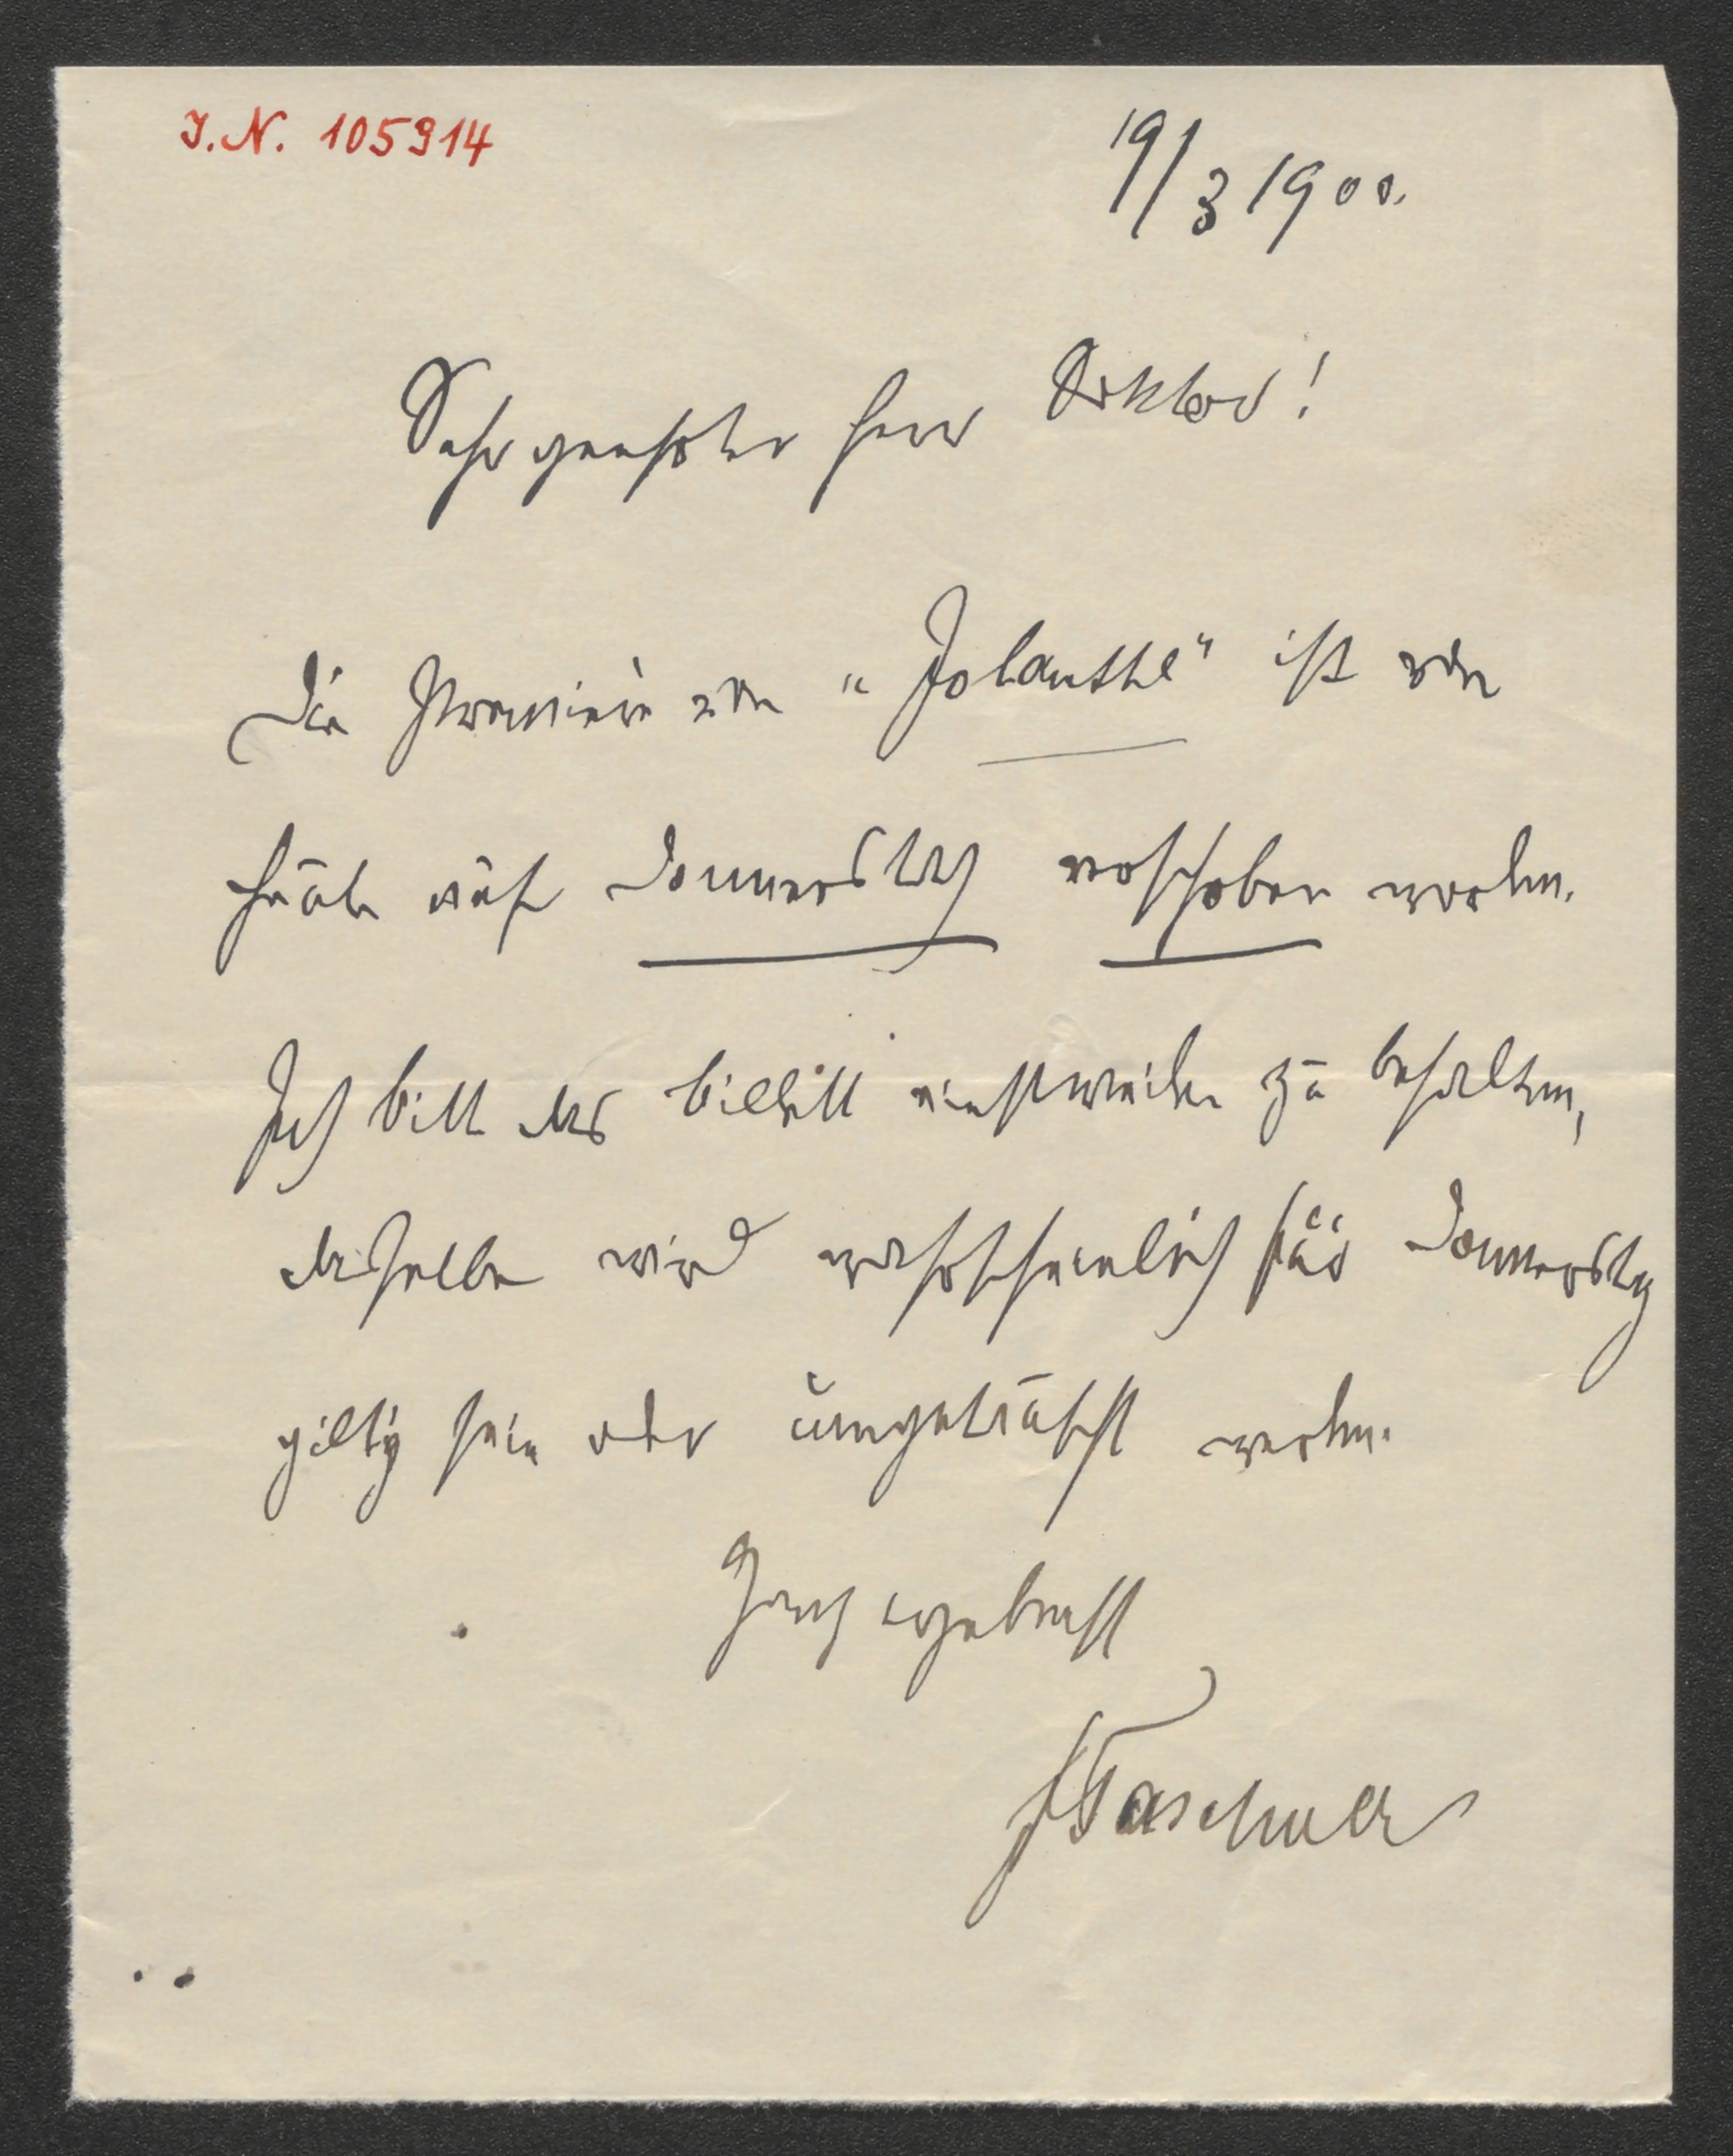 J.N. 105914
19/3 1900.
Sehr geehrter Herr Doktor!
Die Premiere von "Jolanthe" ist von
heute auf Donnerstag verschoben worden.
Ich bitte das Billett einstweilen zu behalten,
dasselbe wird wahrscheinlich für Donnerstag
giltig sein oder umgetauscht werden.
Ganz ergebenst